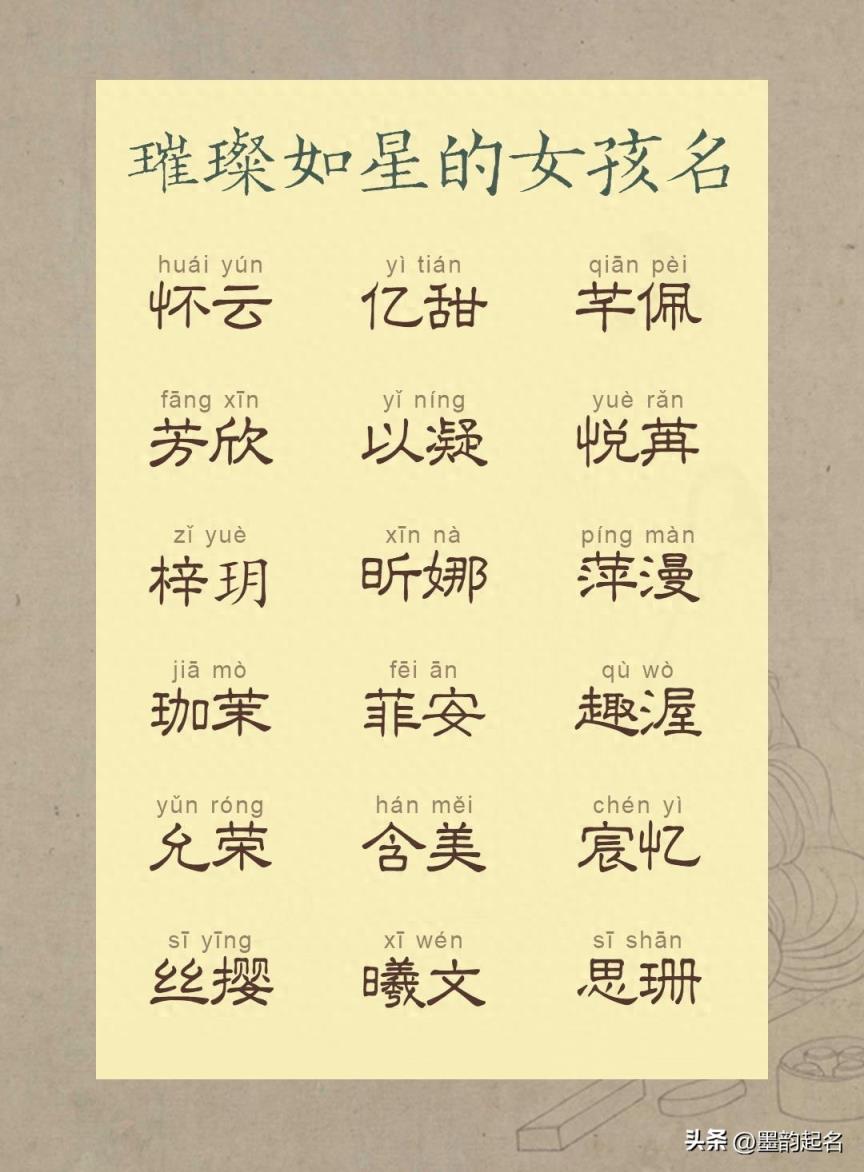 璀璨如星的女孩名
huái yún yì tián qiān pèi
怀云 亿甜 芊佩
fāng xīn yǐ níng yuè rǎn
芳欣 以凝 悦苒
zǐ yuè xīn nà píng màn
梓玥 昕娜 萍漫
jiā mò fēi ān qù wò
珈茉 菲安 趣渥
yǔn róng hán měi chén yì
允荣 含美 宸忆
sī yīng xī wén sī shān
丝撄 曦文 思珊
头条 @墨韵起名